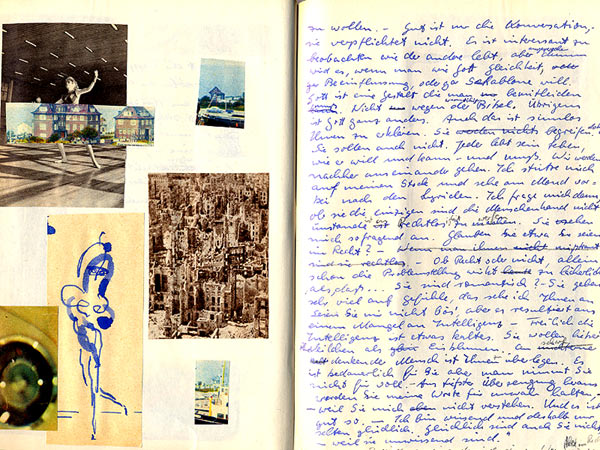 zu wollen. – Gut ist nur die Konversation,
sie verpflichtet nicht. Es ist interessant zu
beobachten wie der andere lebt, aber
wird es, wenn man wie Gott gleichheit, oder
zu Beeinflussung, oder ja Schablone will.
Gott ist eine Gestalt die man bemitleiden
Nicht wegen der Bibel. Übrigens
ist Gott ganz anders. Auch das ist sinnlos
Ihnen zu erklären. Sie werden nicht begreifen
Sie sollen auch nicht. Jeder lebt sein leben,
wie er will und kann – und muß. Wir werden
nachher auseinander gehen. Ich stütze mich
auf meinen Stock und sehe am Mond vor-
bei nach den Hyaden. Ich frage mich dann,
ob sie die Einzigen sind die Menschenhand nicht
imstande ist Sie ersehen
mich so fragend an. Glauben Sie etwa Sie seien
im Recht? – Wenn man ihnen nicht
sind sie rechtlos. Ob Recht oder nicht, allein
schon die Problemstellung wirkt zu lächerlich
als, daß... Sie sind romantisch? – Sie geben
sehr viel auf Gefühle, das sehe ich Ihnen an
Seien Sie mir nicht bös', aber es resultiert aus
einem Mangel an Intelligenz – freilich die
Intelligenz ist etwas kaltes. Sie wollen
als Einblicken. An
denkender Mensch ist Ihnen überlegen. Es
ist bedauerlich für Sie aber man nimmt Sie
nicht für voll. – Aus tiefster überzeugung kann
werden Sie meine Worte für unreal halten –
– weil Sie mich aber nicht verstehen. Und es ist
gut so. Ich bin wissend und deshalb nur
selten glücklich. Glücklich sind auch Sie nicht
– weil sie unwissend sind."